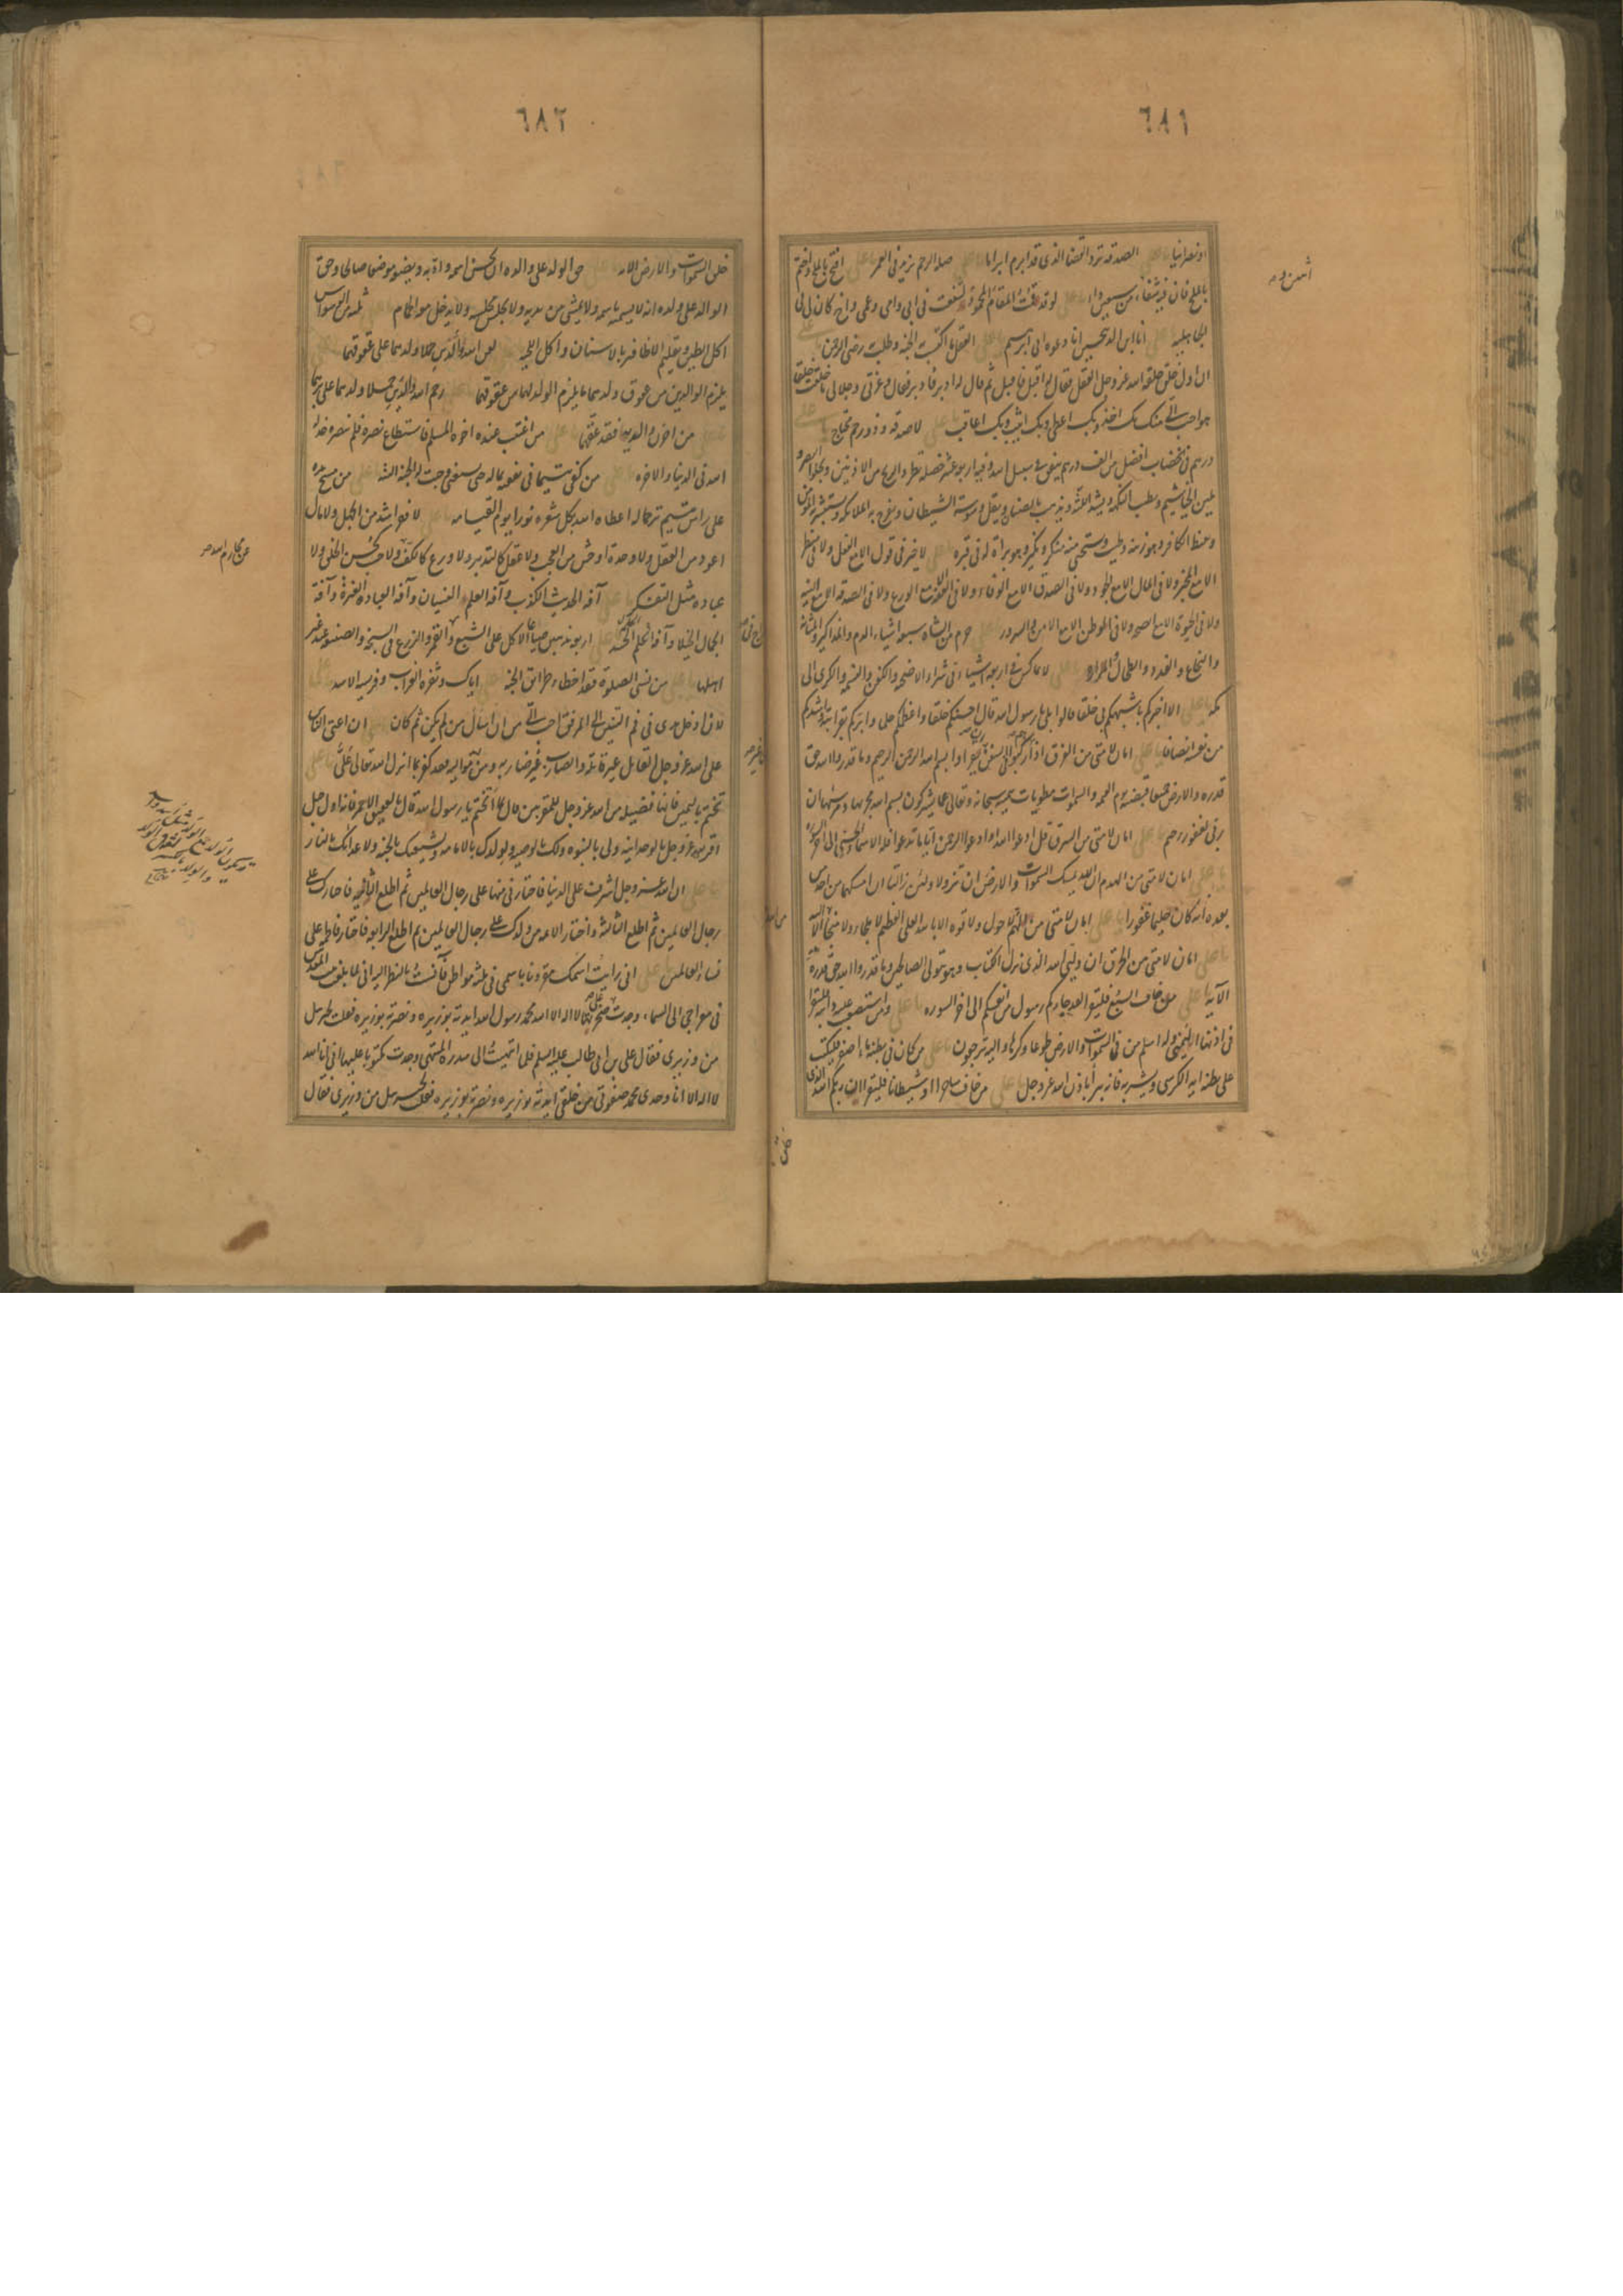 ٦٨١
او نصرانیا یا علی الصدقه ترد القضا الذی قد ابرم ابراما یا علی صله الرحم تزید فی العمر یا علی افتح بالملح و اختم
بالملح فان فیه شفاء من سبعین داء یا علی لو قد قمت المقام المحمود لشفعت فی ابی و امی و عمی و اخ کان لی فی
الجاهلیه یا علی انا ابن الذبیحین انا دعوه ابی ابرهیم یا علی العقل ما اکتسبت به الجنه و طلب به رضی الرحمن یا علی
ان اول خلق خلقه الله عز و جل العقل فقال له اقبل فاقبل ثم قال له ادبر فادبر فقال و عزتی و جلالی ما خلقت خلقا
هو احب الی منک بک اخذ و بک اعطی و بک اثیب و بک اعاقب یا علی لا صدقه و ذو رحم محتاج یا علی
درهم فی الخضاب افضل من الف درهم ینفق فی سبیل الله و فیه اربع عشر خصله یطرد الریح من الاذنین و یجلو البصر و
یلین الخیاشیم و یطیب النکهه و یشد اللثه و یذهب بالضنا و یقل وسوسه الشیطان و تفرح به الملائکه و یستبشر به المؤمن
و یغیظ به الکافر و هو زینه و طیب و یستحیی منه منکر و نکیر و هو براة له فی قبره یا علی لا خیر فی قول الا مع الفعل ولا فی منظر
الا مع المخبر ولا فی المال الا مع الجود ولا فی الصدق الا مع الوفاء ولا فی الفقه الا مع الورع ولا فی الصدقه الا مع النیه
ولا فی الحیوة الا مع الصحه ولا فی الوطن الا مع الامن و السرور یا علی حرم من الشاة سبعه اشیاء الدم و المذاکیر و المثانه
و النخاع و الغدد و الطحال و المراره یا علی لا تماکس فی اربعه اشیاء فی شراء الاضحیه و الکفن و النسمه و الکری الی
مکه یا علی الا اخبرکم باشبهکم بی خلقا قالوا بلی یا رسول الله قال احسنکم خلقا و اعظمکم حلما و ابرکم بقرابته و اشدکم
من نفسه انصافا یا علی امان لامتی من الغرق اذا رکبوا فی السفن فقرؤا بسم الله الرحمن الرحیم و ما قدروا الله حق
قدره و الارض جمیعا قبضته یوم القیمه و السموات مطویات بیمینه سبحانه و تعالی عما یشرکون بسم الله مجریها و مرسیها ان
ربی لغفور رحیم یا علی امان لامتی من السرق قل ادعوا الله او ادعوا الرحمن ایا ما تدعوا فله الاسماء الحسنی الی اخر السوره
یا علی امان لامتی من الهدم ان الله یمسک السموات و الارض ان تزولا و لئن زالتا ان امسکهما من احد من
بعده انه کان حلیما غفورا یا علی امان لامتی من الهم لا حول ولا قوه الا بالله العلی العظیم لا ملجاء ولا منجا من الله الا الیه
یا علی امان لامتی من الحرق ان ولیی الله الذی نزل الکتاب و هو یتولی الصالحین و ما قدروا الله حق قدره
الآیه یا علی من خاف السبع فلیقرا لقد جاءکم رسول من انفسکم الی اخر السوره یا علی و من استصعب علیه دابته فلیقرا
فی اذنها الیمنی و له اسلم من فی السموات و الارض طوعا و کرها و الیه ترجعون یا علی من کان فی بطنه ماء اصفر فلیکتب
علی بطنه ایه الکرسی و یشربه فانه یبرا باذن الله عز و جل یا علی من خاف ساحرا او شیطانا فلیقرا ان ربکم الله الذی
خلق
٦٨٢
خلق السموات و الارض الایه یا علی حق الولد علی والده ان یحسن اسمه و ادبه و یضعه موضعا صالحا و حق
الوالد علی ولده ان لا یسمیه باسمه ولا یمشی من یدیه ولا یجلس مجلسه ولا یدخل معه الحمام یا علی ثلثه من الوسواس
اکل الطین و تقلیم الاظافیر بالاسنان و اکل اللحیه یا علی لعن الله والدین حملا ولدهما علی عقوقهما یا علی
یلزم الوالدین من عقوق ولدهما ما یلزم الولد لهما من عقوقهما یا علی رحم الله والدین حملا ولدهما علی برهما
یا علی من احزن والدیه فقد عقهما یا علی من اغتیب عنده اخوه المسلم فاستطاع نصره فلم ینصره خذله
الله فی الدنیا و الاخره یا علی من کفی یتیما فی نفقته بماله حتی یستغنی وجبت له الجنه البته یا علی من مسح یده
علی راس یتیم ترحما له اعطاه الله بکل شعره نورا یوم القیامه یا علی لا فقر اشد من الجهل ولا مال
اعود من العقل ولا وحده اوحش من العجب ولا عقل کالتدبیر ولا ورع کالکف ولا حسب کحسن الخلق ولا
عباده مثل التفکر یا علی آفه الحدیث الکذب و آفه العلم النسیان و آفه العباده الفتره و آفه
الجمال الخیلاء و آفه الحلم الحسد یا علی اربعه یذهبن ضیاعا الاکل علی الشبع و السراج فی القمر و الزرع فی السبخه و الصنیعه عند غیر
اهلها یا علی من نسی الصلوة علی فقد اخطاء طریق الجنه یا علی ایاک و نقره الغراب و فریسه الاسد یا علی
لان ادخل یدی فی فم التنین الی المرفق احب الی من ان اسال من لم یکن ثم کان یا علی ان اعتی الناس
علی الله عز و جل القاتل غیر قاتله و الضارب غیر ضاربه و من تولی غیر موالیه فقد کفر بما انزل الله تعالی علی یا علی
تختم بالیمین فانها فضیله من الله عز و جل للمقربین قال بما اتختم یا رسول الله قال بالعقیق الاحمر فانه اول جبل
اقر لله عز و جل بالوحدانیه ولی بالنبوه و لک بالوصیه و لولدک بالامامه و لشیعتک بالجنه و لاعدائک بالنار
یا علی ان الله عز و جل اشرف علی الدنیا فاختارنی منها علی رجال العالمین ثم اطلع الثانیه فاختارک علی
رجال العالمین ثم اطلع الثالثه و اختار الائمه من ولدک علی رجال العالمین ثم اطلع الرابعه فاختار فاطمه علی
نساء العالمین یا علی انی رایت اسمک مقرونا باسمی فی ثلثه مواطن فآنست بالنظر الیه انی لما بلغت بیت المقدس
فی معراجی الی السماء وجدت علی صخرتها لا اله الا الله محمد رسول الله ایدته بوزیره و نصرته بوزیره فقلت لجبرئیل
من وزیری فقال علی بن ابی طالب علیه السلم فلما انتهیت الی سدره المنتهی وجدت مکتوبا علیها انی انا الله
لا اله الا انا وحدی محمد صفوتی من خلقی ایدته بوزیره و نصرته بوزیره فقلت لجبرئیل من وزیری فقال